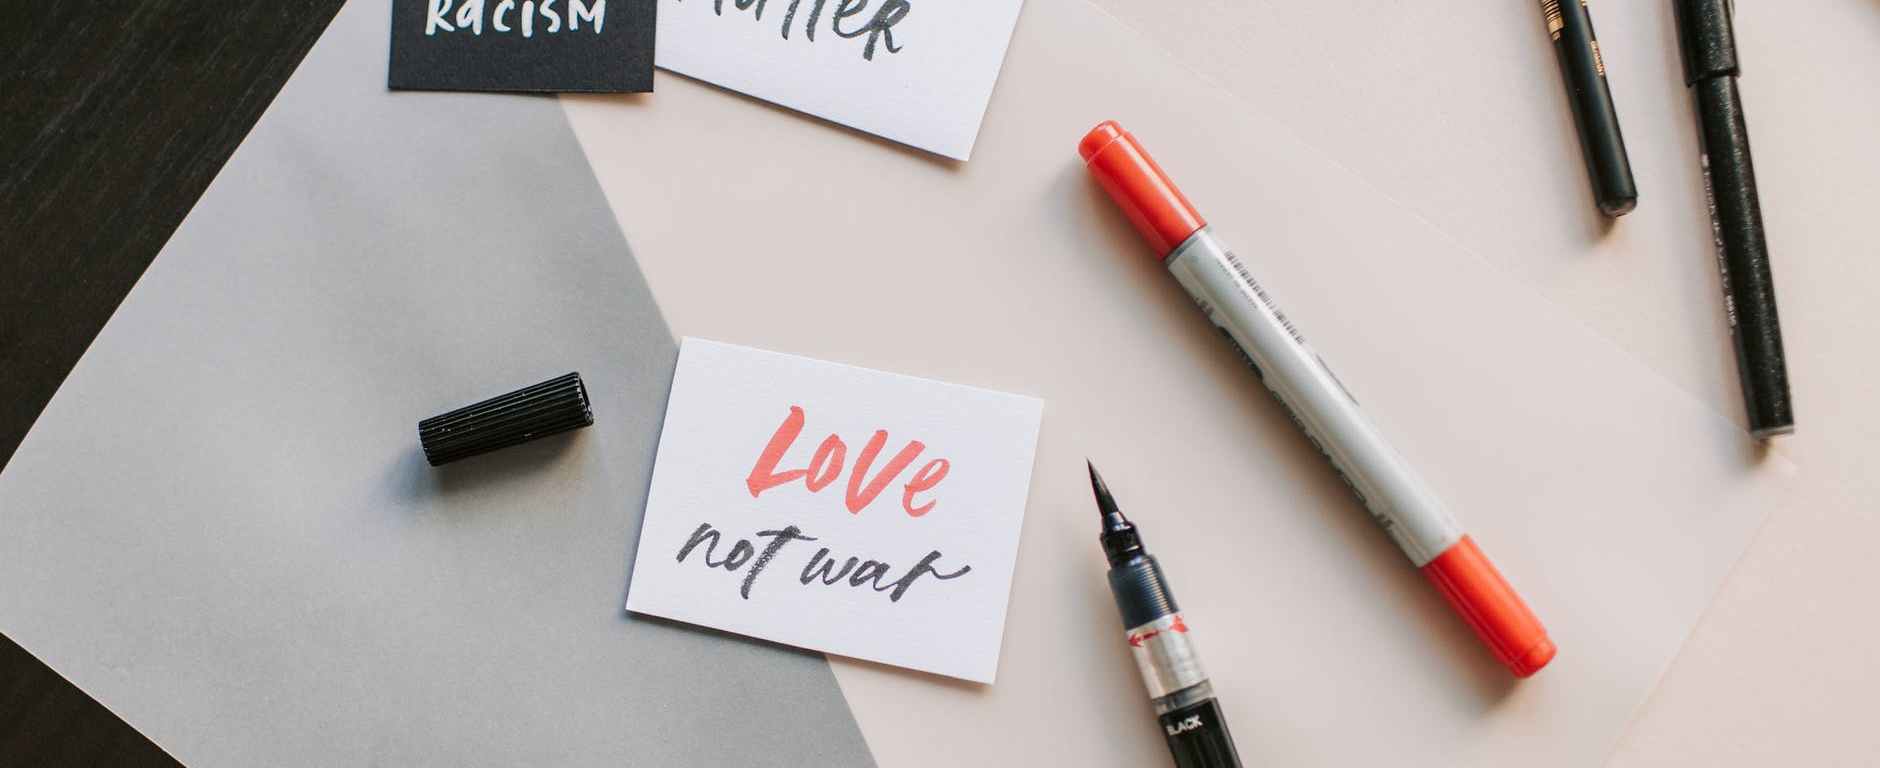 RacisM
Matter
Love
not war
BLACK